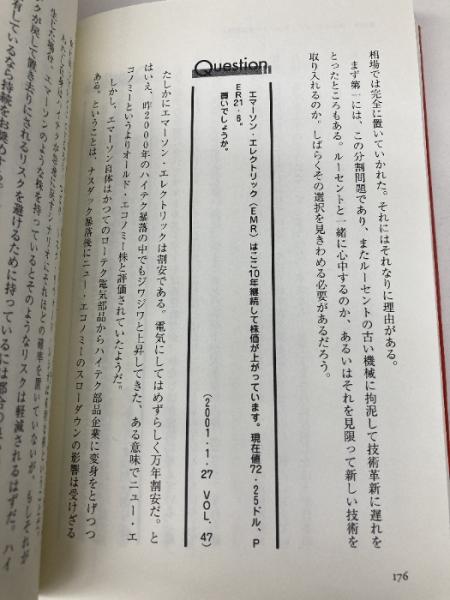 相場では完全に置いていかれた。それにはそれなりに理由がある。
まず第一には、この分割問題であり、またルーセントの古い機械に拘泥して技術革新に遅れを
とったところもある。ルーセントと一緒に心中するのか、あるいはそれを見限って新しい技術を
取り入れるのか、しばらくその選択を見きわめる必要があるだろう。
Question
エマーソン・エレクトリック(EMR)はここ10年継続して株価が上がっています。現在値72・25ドル、P
ER21・6。
買いでしょうか。
(2001・1・27 VOL.47)
たしかにエマーソン・エレクトリックは割安である。電気にしてはめずらしく万年割安だ。と
はいえ、昨2000年のハイテク暴落の中でもジワジワと上昇してきた、ある意味でニュー・エ
コノミーというよりオールド・エコノミー株と評価されていたようだ。
しかし、エマーソン自体はかつてのローテク電気部品からハイテク部品企業に変身をとげつつ
ある。ということは、ナスダック暴落後にニュー・エコノミーのスローダウンの影響は受けざる
エマーソンのような株を持っているとそのようなリスクは軽減されるはずだ。ハイ
クが戻して置き去りにされるリスクを避けるために持っているには都合の
有しているなら持続をお薦めする。
176